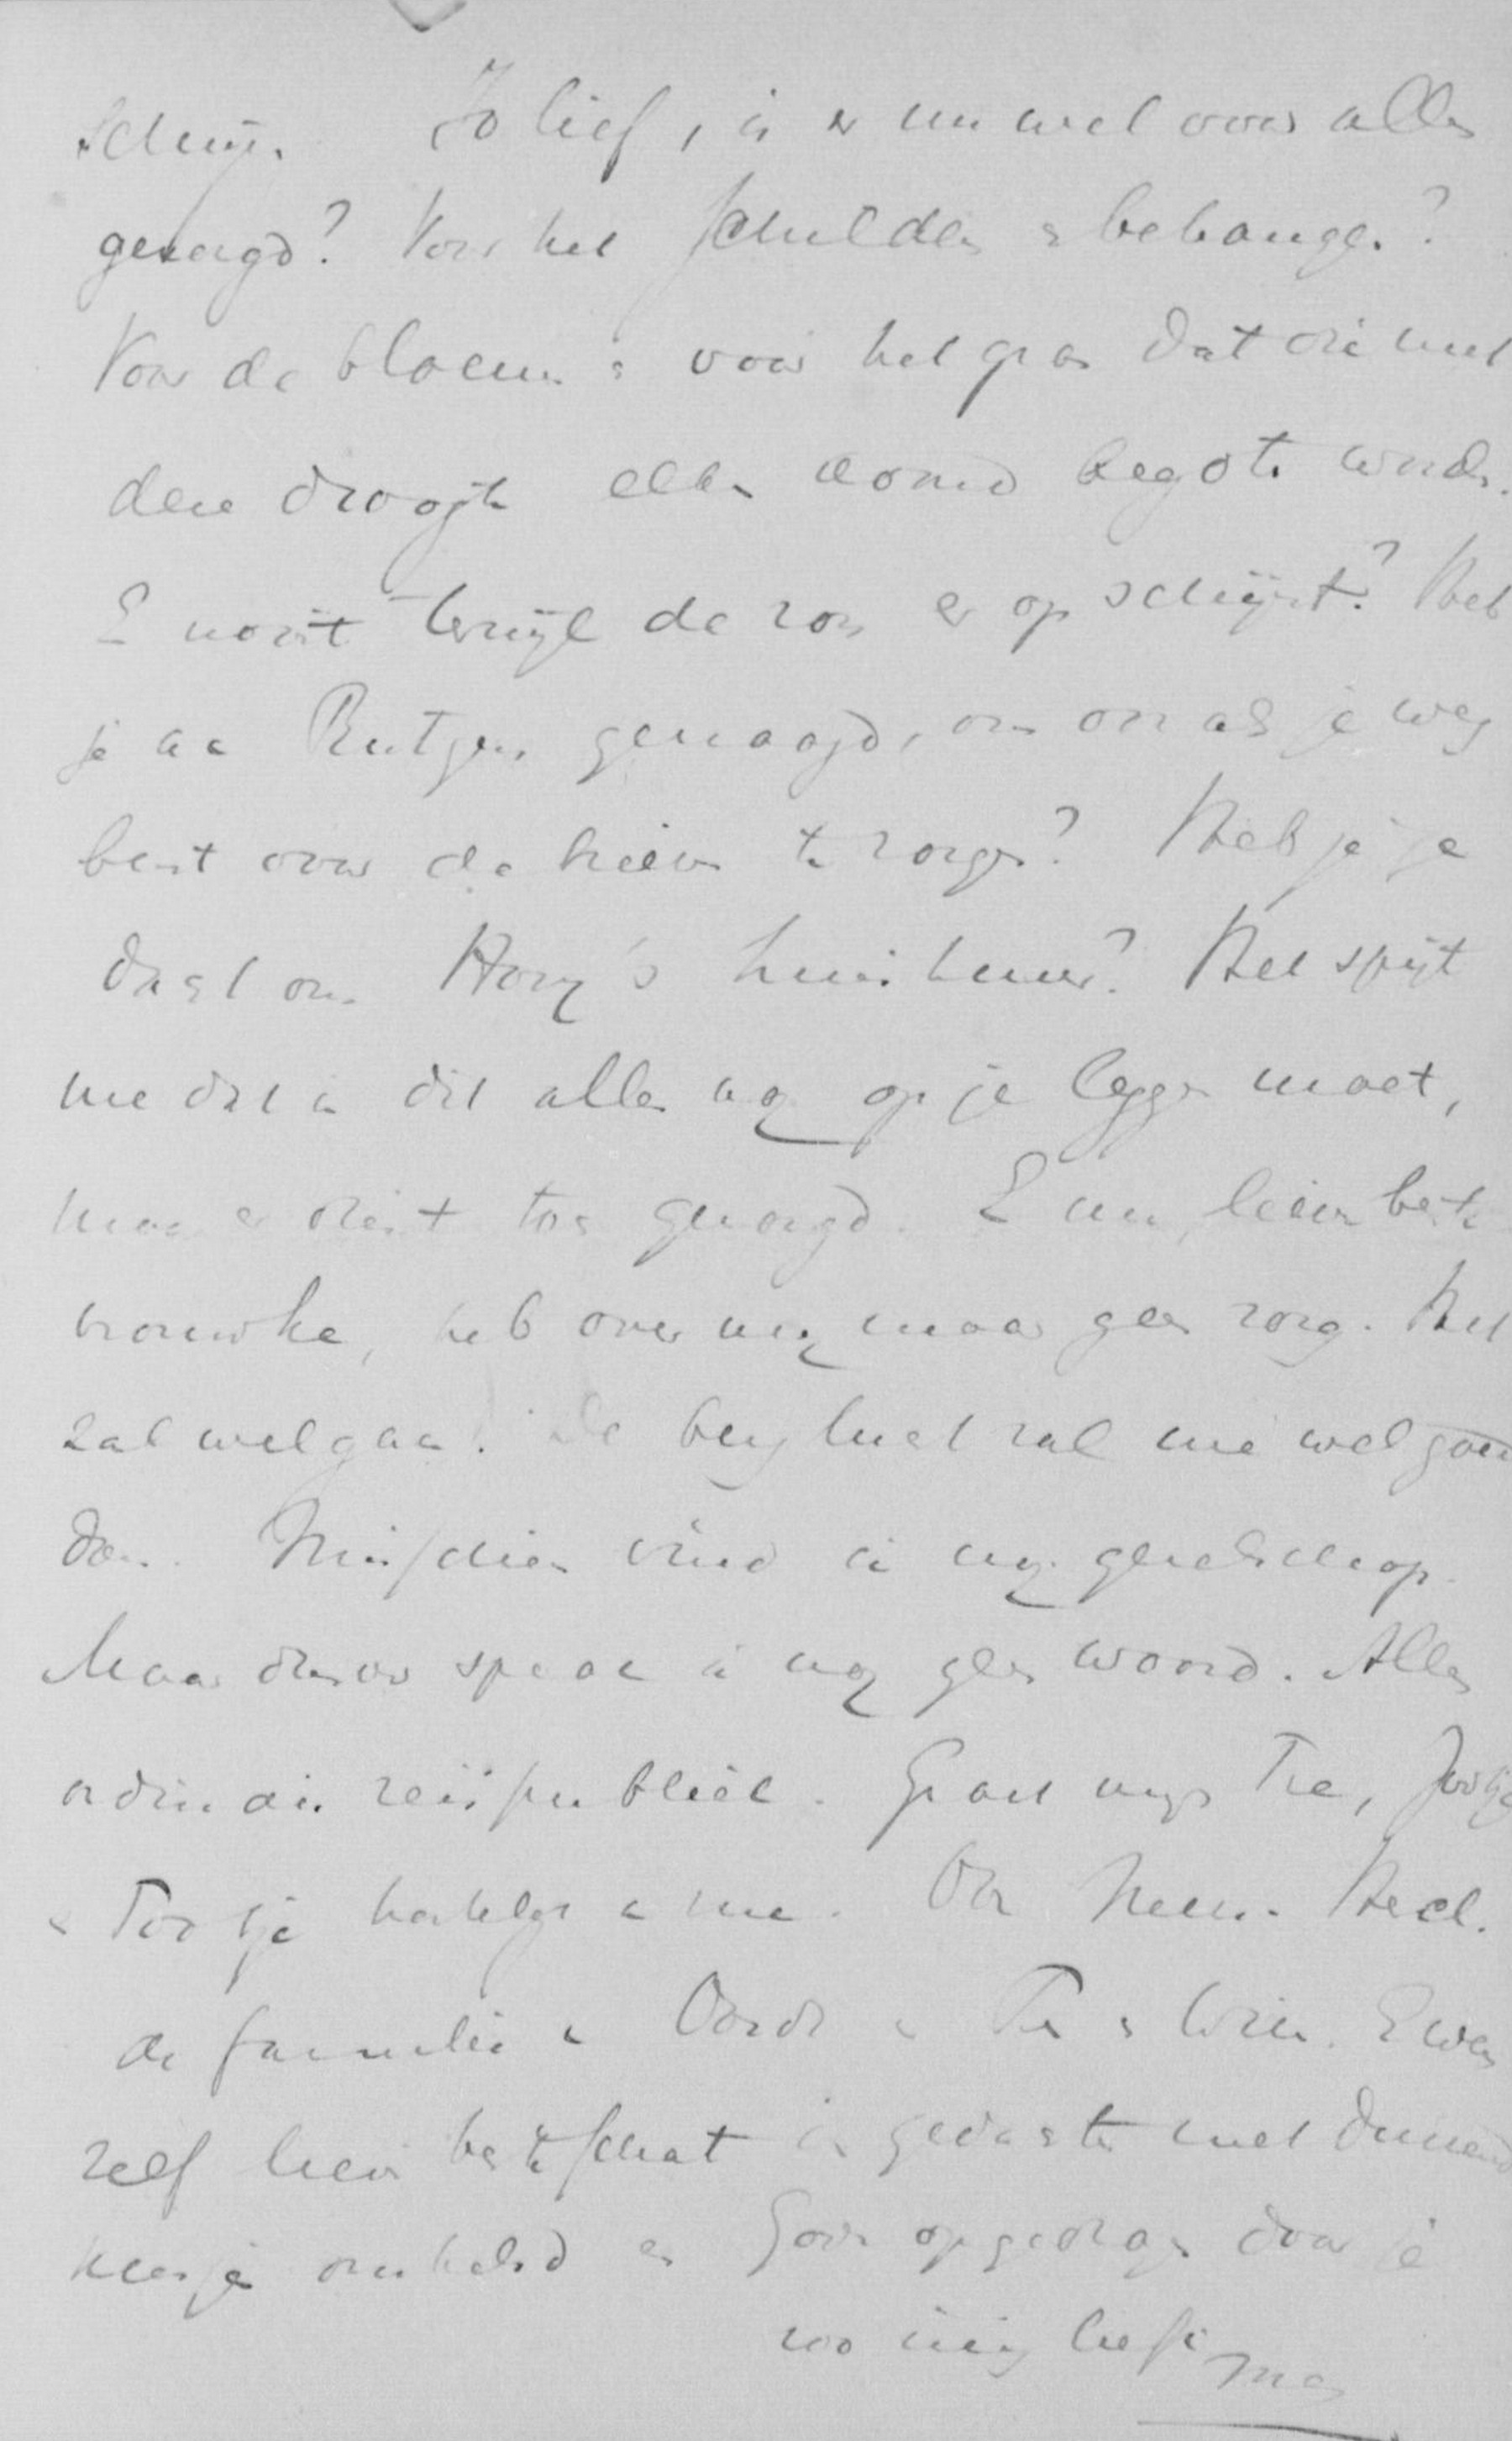 schrijf. Jo lief, is er nu wel voor alles
gezorgd? Voor het schilderen en behangen?
Voor de bloemen en voor het gras dat die met
deze droogte elken avond begoten worden.
En nooit terwijl de zon er op schijnt? Heb
je aan Rutgers gevraagd, om als je weg
bent voor de te zorgen? Heb je
gedacht om huishuur? Het spijt
me dat ik dit alles nog op je leggen moet,
maar er dient toe gezorgd. En nu, lieve beste
vrouwke, heb over mij maar geen zorg. Het
zal wel gaan. De berglucht zal me wel goed
doen. Misschien vind ik nog gezelschap.
Maar daarover sprak ik nog geen woord. Alles
ordinair reispubliek. Groet Tre, Jootje
en Tootje hartelijk van me. Ook Mevr. Heel
de familie en en Wim. En wees
zelf lieve beste schat in gedachten met duizend
kusjes omhelsd en God opgedragen door je
zoo innig liefh
man